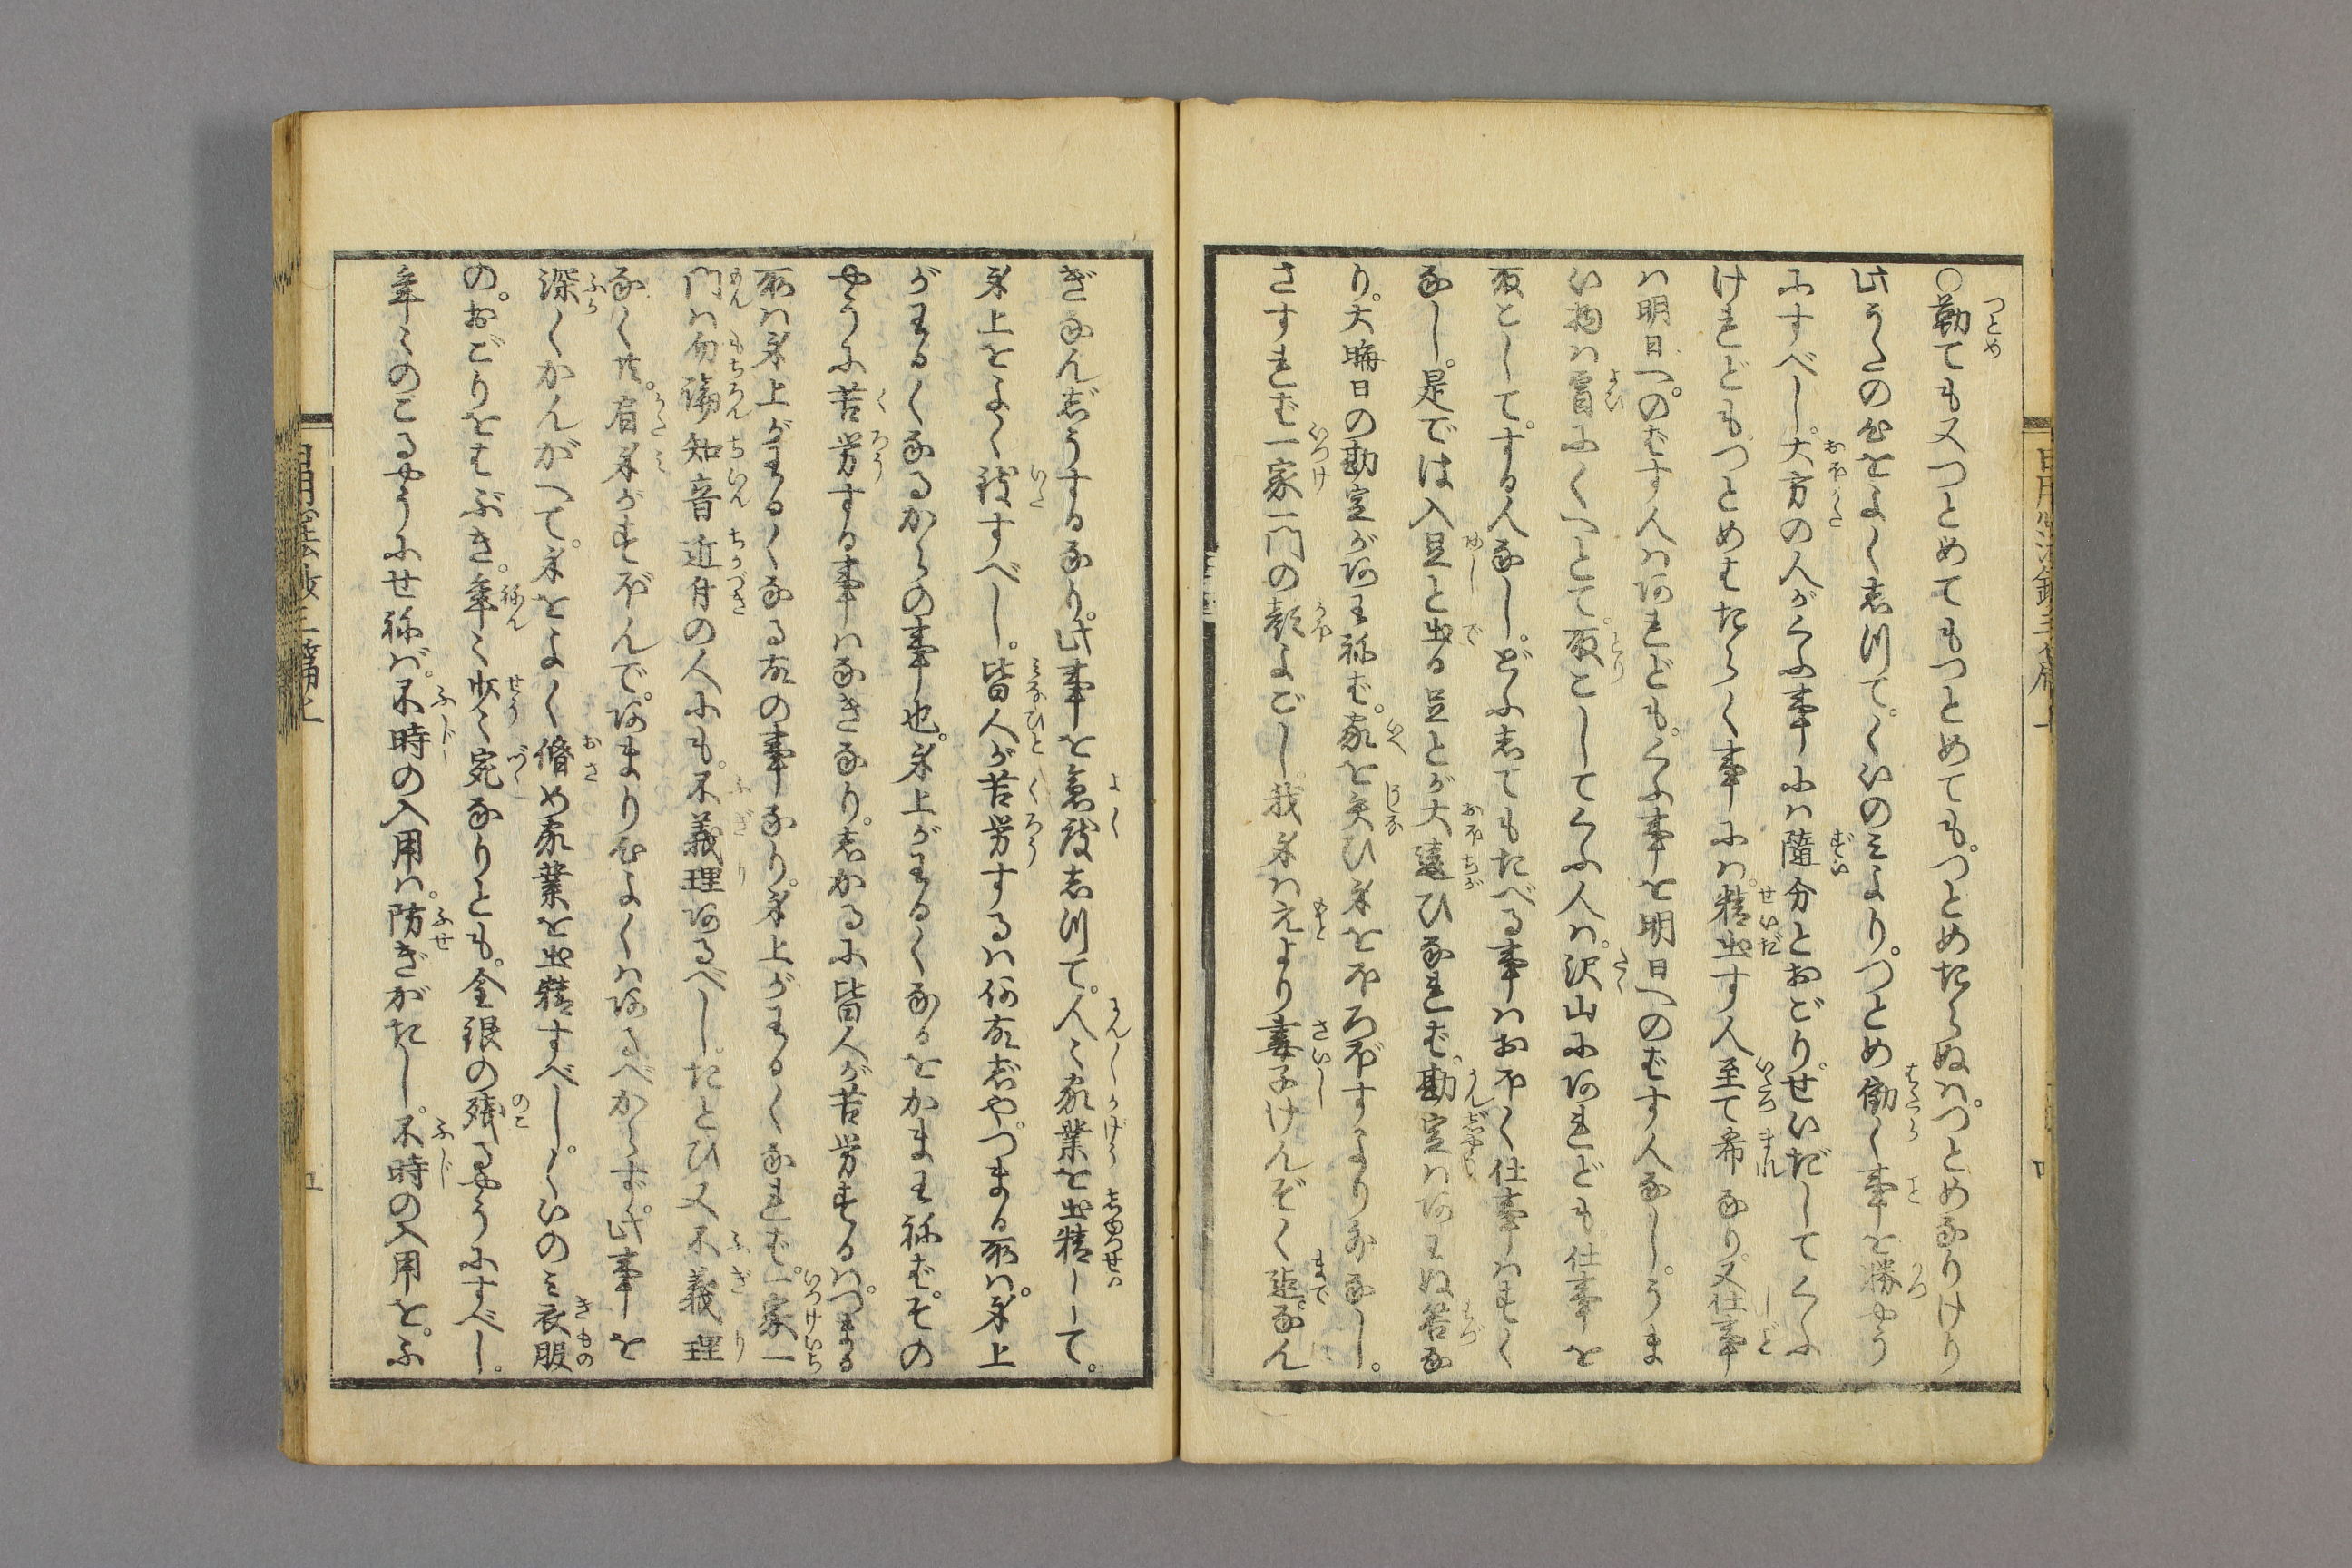 ○勤ても又つとめてもつとめても。つとめたらぬハつとめなりけり
此うたの心をよく志つて。くいのミより。つとめ働く事を勝やう
にすべし。大方の人がくふ事にハ随分とおごり。せいだしてくふ
けれどもつとめはたらく事にハ。精出す人至て希なり。又仕事
ハ明日へのばす人ハあれども。くふ事を明日へのばす人なし。うま
い物ハ宵にくへとて。取こしてくふ人ハ。沢山にあれども。仕事を
取こして。する人なし。どふ志てもたべる事ハおほく仕事ハすく
なし。是では入足と出る足とが大違ひなれば。勘定ハあはぬ筈な
り。大晦日の勘定があはねば。家を失ひ身をほろぼすより外なし。
さすれば一家一門の顔よごし。我身ハ元より妻子けんぞく迄。なん
ぎなんぎうするなり。此事を急度志つて。人〻家業を出精して。
身上をよく致すべし。皆人が苦労するハ何故ぢや。つまる所ハ。身上
がわるくなるからの事也。身上がわるくなるをかまはねば。その
やうに苦労する事ハなきなり。志かるに皆人が苦労するハ。つまる
所ハ身上がわるくなる故の事なり。身上がわるくなれば。一家一
門ハ勿論知音近付の人にも。不義理あるべし。たとひ又不義理
なく共。肩身がすぼんで。あまり心よくハあるべからず。此事を
深くかんがへて。身をよく脩め家業を出精すべし。くいのミ衣服
の。おごりをはぶき。年〻少〻宛なりとも。金銀の残るやうにすべし。
年〻のこるやうにせねば。不時の入用ハ。防ぎがたし。不時の入用を。ふ